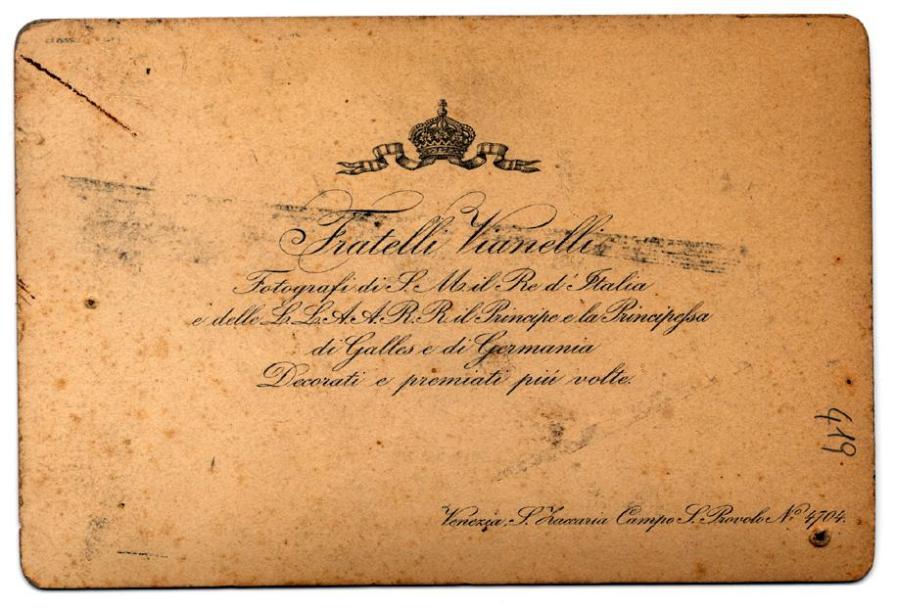 Fratelli Vianelli
Fotografi di S. M. il Re d' Italia
e delle L. L. A. A. R. R. il Principe e la Principeſsa
di Galles e di Germania
Decorati e premiati piú volte.
419
Venezia, S. Zaccaria Campo S. Provolo Nº 4704.